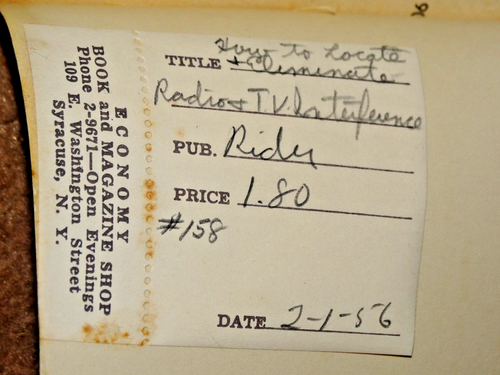 ECONOMY
BOOK and MAGAZINE SHOP
Phone 2-9671—Open Evenings
109 E. Washington Street
Syracuse, N. Y.
How to Locate
TITLE & Eliminate
Radio & T.V. Interference
PUB. Rider
PRICE 1.80
#158
DATE 2-1-56